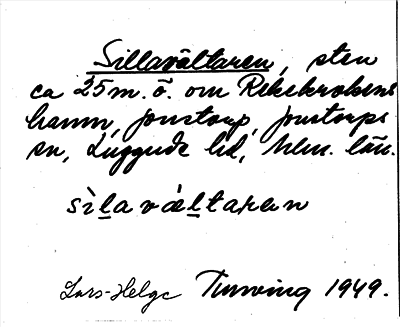 Sillavältaren, sten
ca 25 m. ö. om Rekekrokens
hamn, Jonstorp, Jonstorps
sn, Luggude hd, Mlm. län.
sìlavältaren
Lars-Helge Tunving 1949.